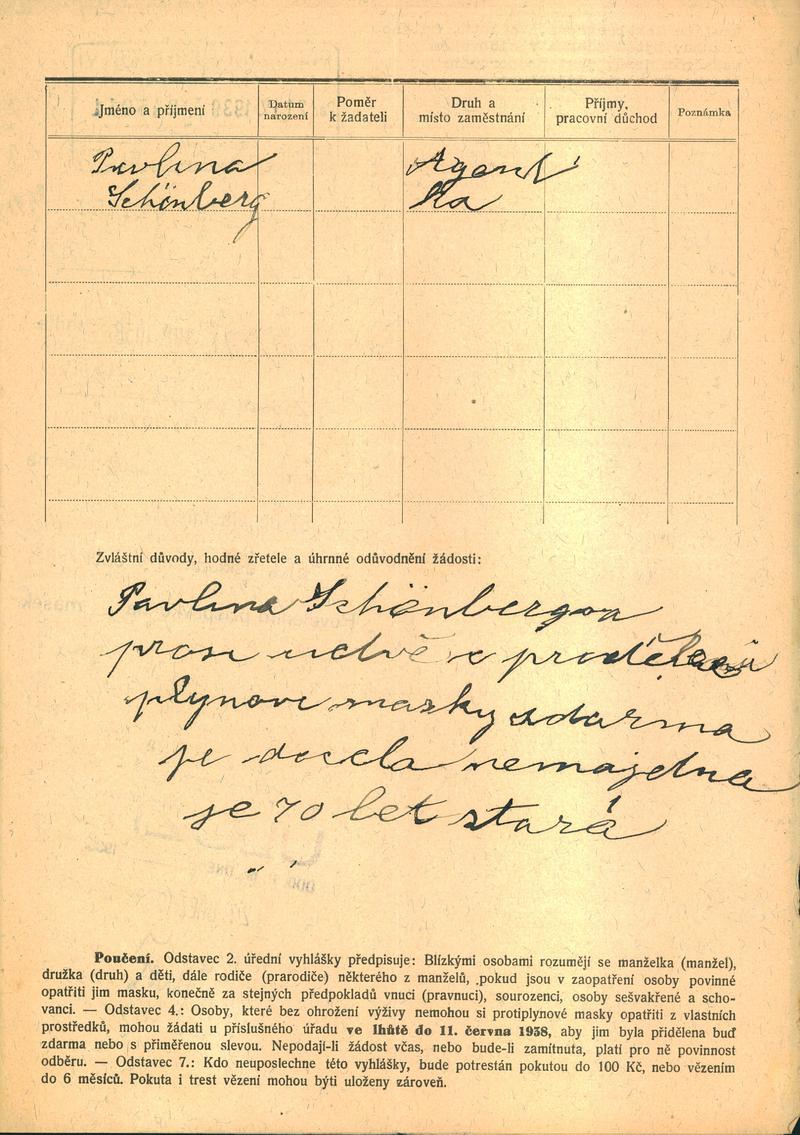 Jméno a příjmení
Datum narození
Poměr k žadateli
Druh a místo zaměstnání
Příjmy, pracovní důchod
Poznámka
Pavlina Agent
Schönberg ka
Zvláštní důvody, hodné zřetele a úhrnné odůvodnění žádosti:
Pavlina Schönbergova
prosi uctvě o
plynove masky zdarma
je docela nemajetna
je 70 let stará
Poučení. Odstavec 2. úřední vyhlášky předpisuje: Blízkými osobami rozumějí se manželka (manžel),
družka (druh) a děti, dále rodiče (prarodiče) některého z manželů, pokud jsou v zaopatření osoby povinné
opatřiti jim masku, konečně za stejných předpokladů vnuci (pravnuci), sourozenci, osoby sešvakřené a scho-
vanci. — Odstavec 4.: Osoby, které bez ohrožení výživy nemohou si protiplynové masky opatřiti z vlastních
prostředků, mohou žádati u příslušného úřadu ve lhůtě do 11. června 1938, aby jim byla přidělena buď
zdarma nebo s přiměřenou slevou. Nepodají-li žádost včas, nebo bude-li zamítnuta, platí pro ně povinnost
odběru. — Odstavec 7.: Kdo neuposlechne této vyhlášky, bude potrestán pokutou do 100 Kč, nebo vězením
do 6 měsíců. Pokuta i trest vězení mohou býti uloženy zároveň.